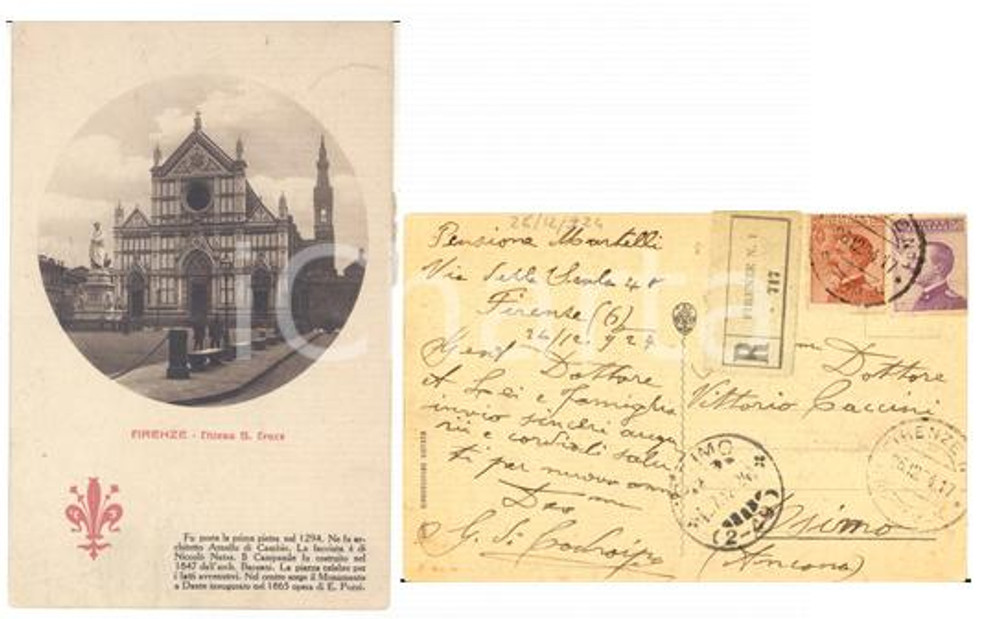 FIRENZE - Chiesa S. Croce
Fu posta la prima pietra nel 1294. Ne fu ar-
chitetto Arnolfo di Cambio. La facciata è di
Niccolò Matas. Il Campanile fu costruito nel
1847 dall'arch. Baccani. La piazza celebre per
i fatti avvenutivi. Nel centro sorge il Monumento
a Dante inaugurato nel 1865 opera di E. Pazzi.
iCharta
26/12/924
Pensione Martelli
Via della Scala 48
Firenze (6)
26/12.924
Gent. Dottore
A Lei e famiglia
invio sinceri augu
rii e cordiali salu
ti per nuovo anno
Dev
G. Di
R
FIRENZE N. 1
717
Dottore
Vittorio Caccini
Osimo
(Ancona)
FIRENZE